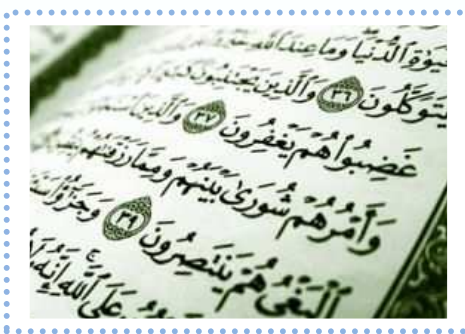 ٱلدُّنْيَا وَمَا عِندَ ٱللَّهِ
يَتَوَكَّلُونَ ٣٦ وَٱلَّذِينَ يَجْتَنِبُونَ
غَضِبُوا۟ هُمْ يَغْفِرُونَ ٣٧ وَٱلَّذِينَ
وَأَمْرُهُمْ شُورَىٰ بَيْنَهُمْ وَمِمَّا رَزَقْنَٰهُمْ
ٱلْبَغْىُ هُمْ يَنتَصِرُونَ ٣٩ وَجَزَٰٓؤُا۟
عَلَى ٱللَّهِ إِنَّهُۥ